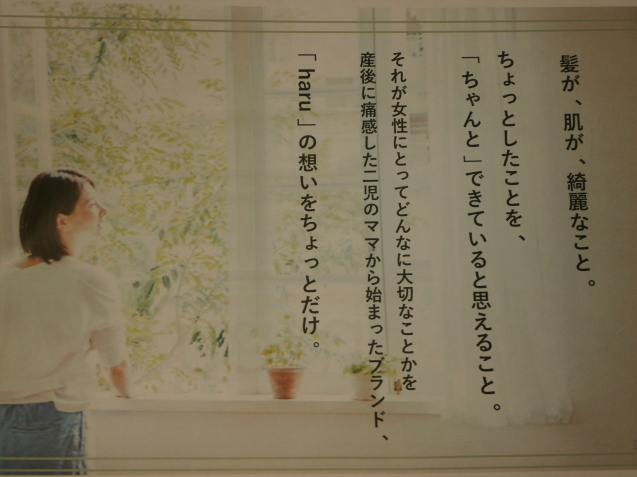 髪が、肌が、綺麗なこと。
ちょっとしたことを、
「ちゃんと」できていると思えること。
それが女性にとってどんなに大切なことかを
産後に痛感した二児のママから始まったブランド、
「haru」の想いをちょっとだけ。